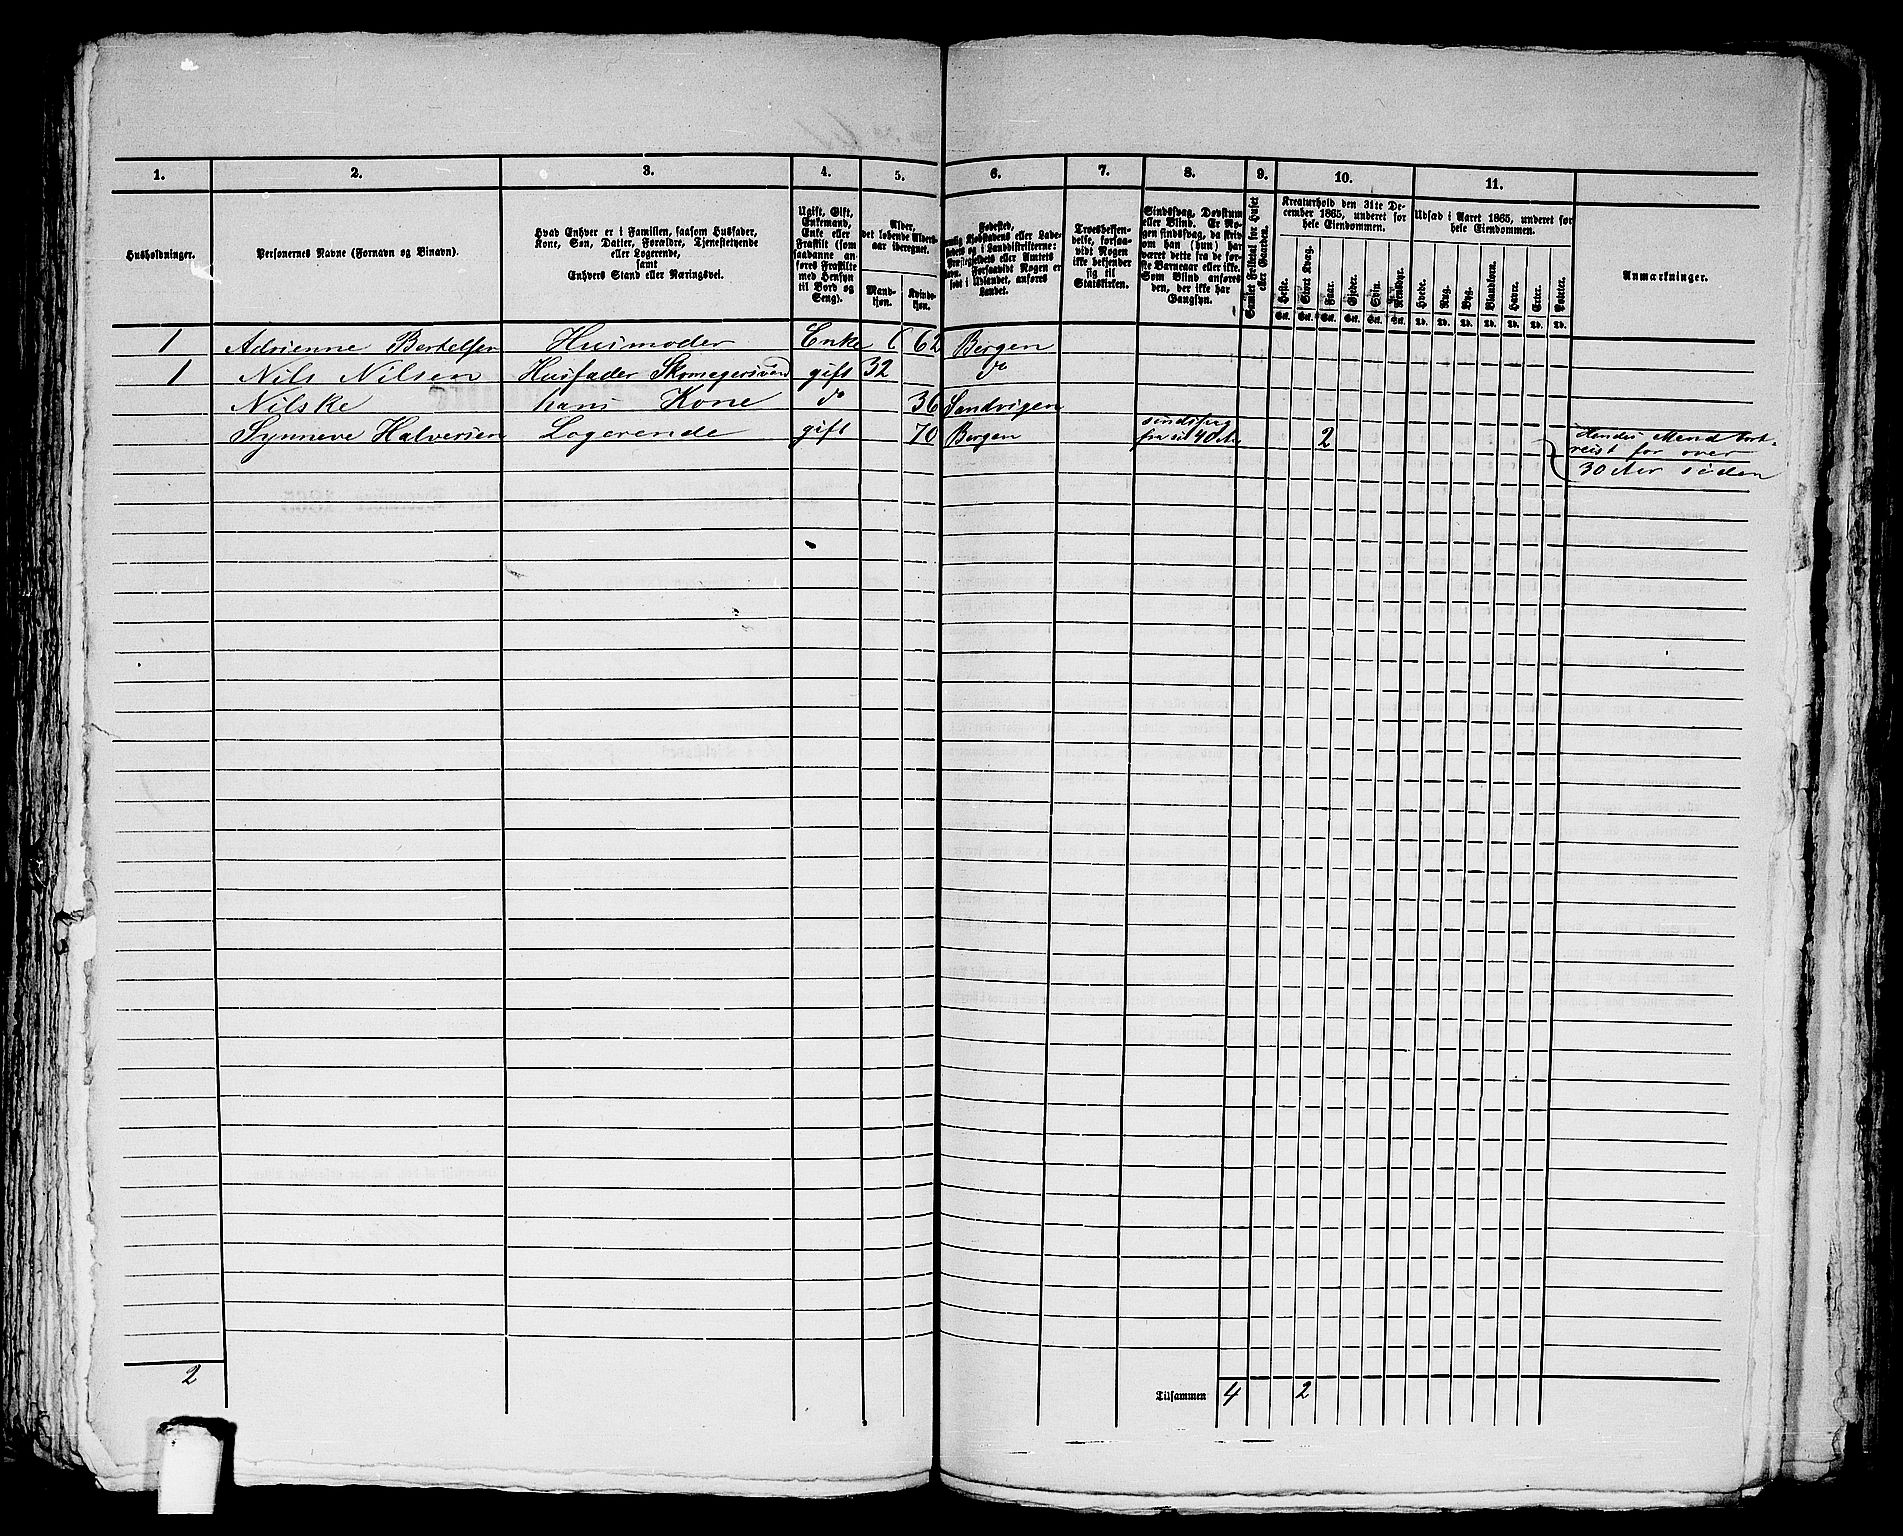 1. 2. 3. 4. 5. 6. 7. 8. 9. 10. 11.
Husholdninger.
Personernes Navne (Fornavn og Binavn).
Hvad Enhver er i Familien, saasom Husfader,
Kone, Søn, Datter, Forældre, Tjenestetyende
eller Logerende,
samt
Enhvers Stand eller Næringsvei.
Ugift, Gift,
Enkemand,
Enke eller
Fraskilt (som
saadanne an-
føres Fraskilte
med Hensyn
til Bord og
Seng).
Alder,
det løbende Alders-
aar iberegnet.
Mand-
kjøn.
Kvinde-
kjøn.
Fødested,
Landet.
Troesbekjen-
delse, forsaa-
vidt Nogen
ikke bekjender
sig til
Statskirken.
Sindssvag, Døvstum
eller Blind. Er No-
gen sindssvag, da skriv
om han (hun) har
været dette fra de før-
ste Barneaar eller ikke.
Som Blind anføres
den, der ikke har
Gangsyn.
Samlet Folketal for Huset
eller Gaarden.
Kreaturhold den 31te De-
cember 1865, underet for
hele Eiendommen.
Heste.
Stort Kvæg.
Faar.
Gjeder.
Svin.
Rensdyr.
Udsæd i Aaret 1865, underet for
hele Eiendommen.
Hvede.
Rug.
Byg.
Blandkorn.
Havre.
Erter.
Poteter.
Anmærkninger.
1 Adrienne Bertelsen Husmoder Enke 62 Bergen
1 Nils Nilsen Husfader Skomagersvend gift 32 do
Nilske hans Kone do 36 Sandvigen
Synneve Halversen Logerende gift 70 Bergen sindssvag 2 Hendes Mand bort-
reist for over
30 Aar siden
2
Tilsammen 4 2